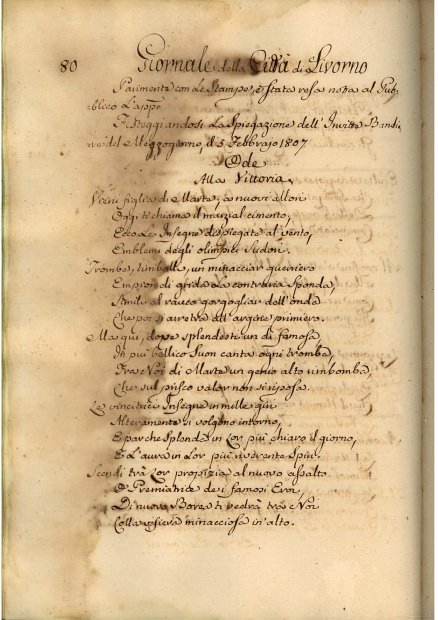 80 Giornale della Città di Livorno
Parimente con Le Stampe, è stata resa nota al Pub-
blico L'appo
Festeggiandosi La Spiegazione dell'Invitta Bandi-
era del Mezzogiorno, il 5 Febbrajo 1807
Ode
Alla Vittoria
Vieni figlia di Marte; a nuovi allori
Oggi ti chiama il marzial cimento,
Ecco Le Insegne dispiegate al vento,
Emblemi degli olimpici Sudori.
Trombe, timballi, un minacciar guerriero
Empion di grida La contraria Sponda,
Simile al rauco gorgogliar dell'onda
Che poi si arretra all'argine primiero.
Ma qui, dope splendesti un dì famosa,
In più bellico Suon canta ogni tromba,
Fra Noi di Marte un genio alto rimbomba,
Che sul prisco valor non si riposa.
Le vincitrici Insegne in mille giri
Alteramente si volgono intorno,
E par che Splenda in Lor più chiaro il giorno,
E L'aura in Lor più riverente Spiri.
Scendi trà Lor propizia al nuovo assalto
O Premiatrice dei famosi Eroi,
Di nuovo Borea ti vedrà trà Noi
Colla minacciosa in alto.